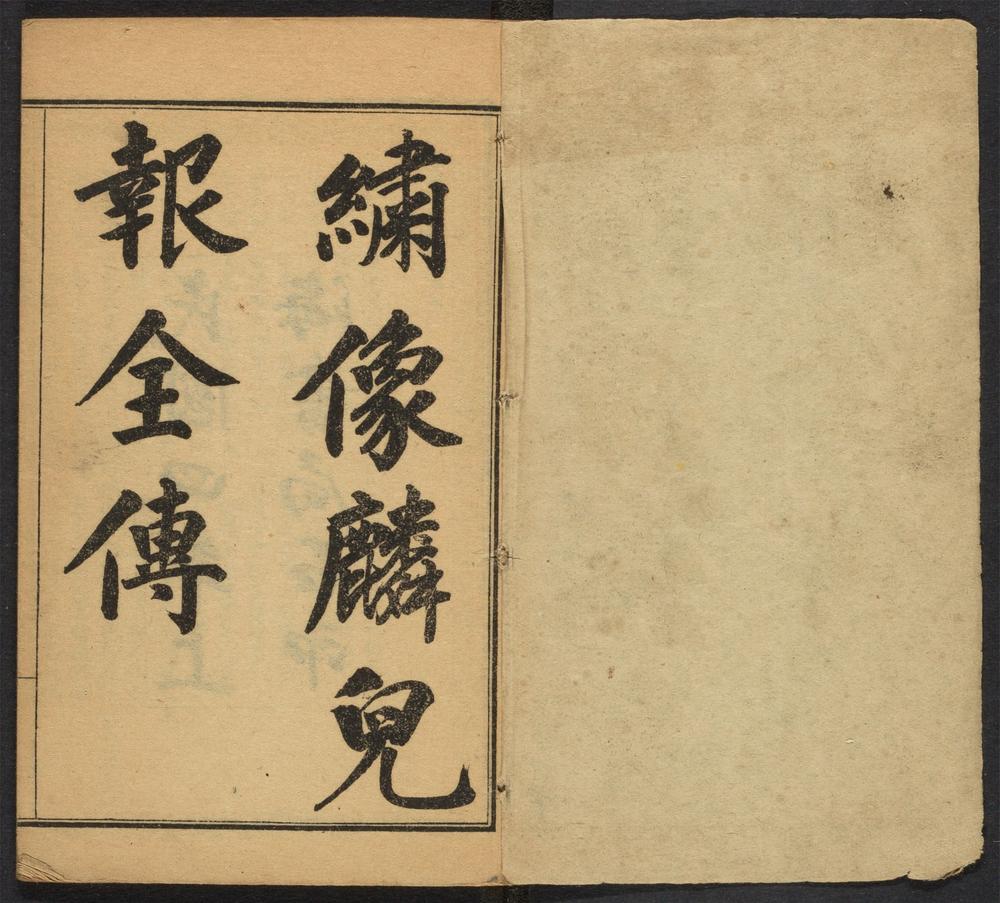 繡像麟兒
報全傳